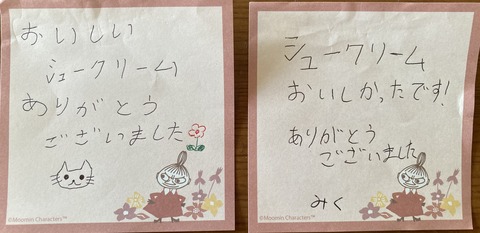 おいしい
シュークリーム
ありがとう
ございました
©Moomin Characters™
シュークリーム
おいしかったです!
ありがとう
ございました
みく
©Moomin Characters™